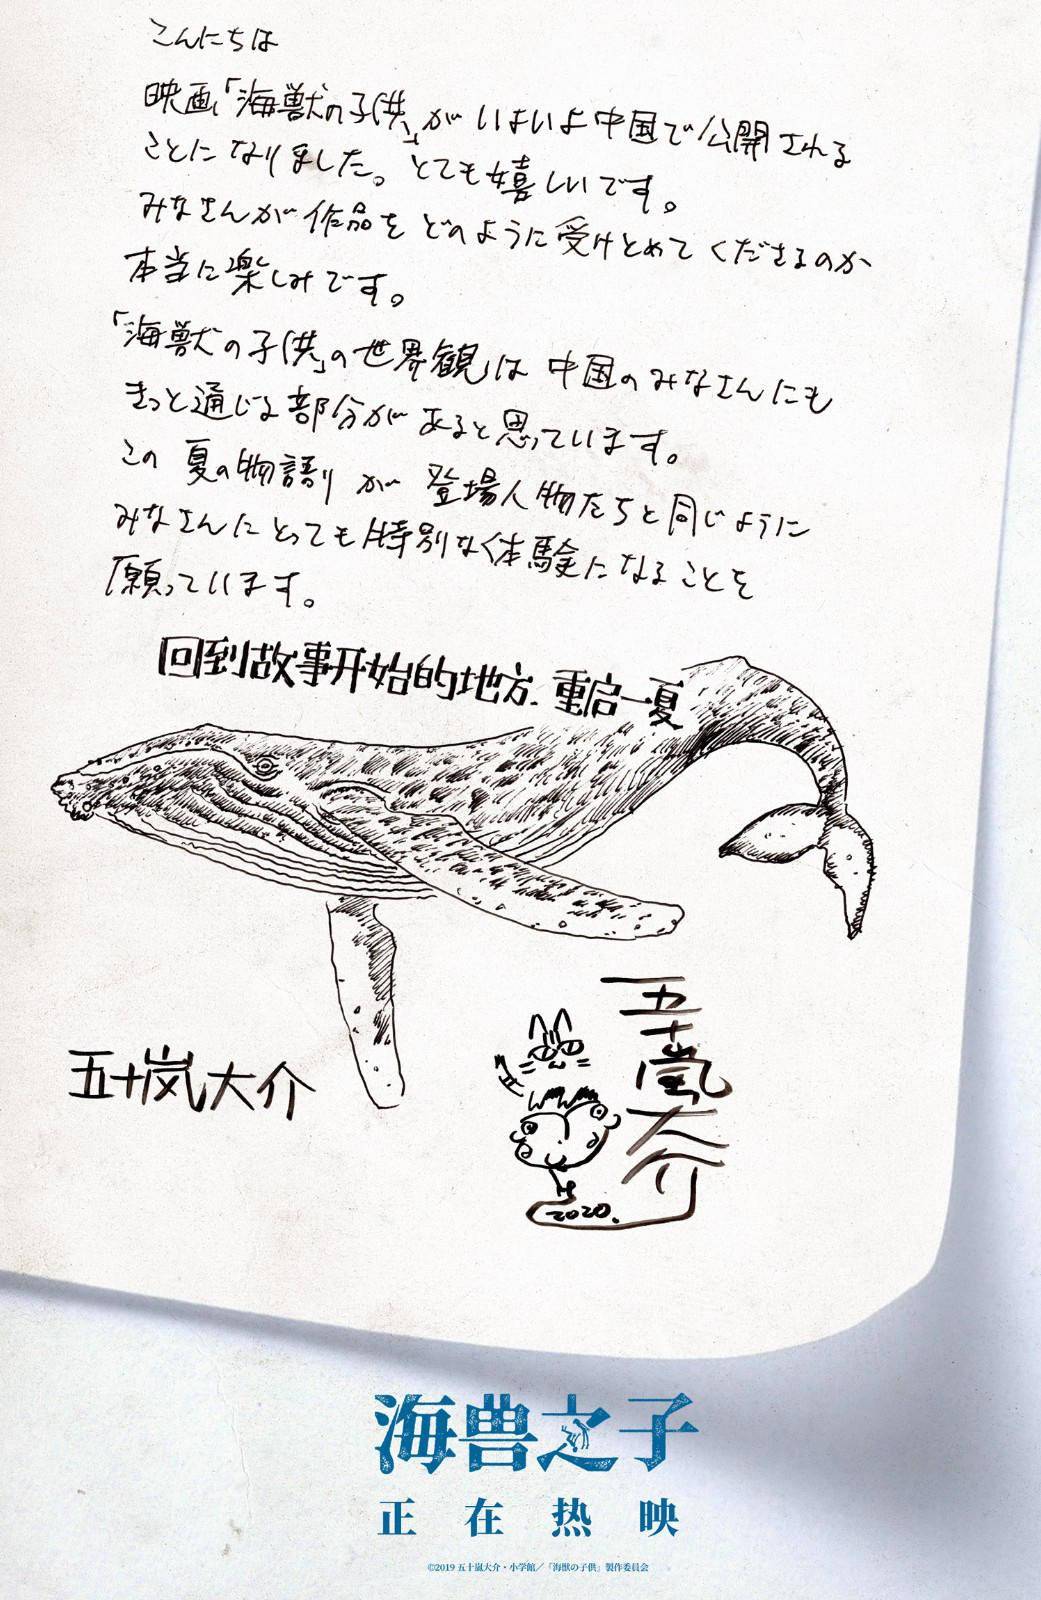 こんにちは
映画「海獣の子供」がいよいよ中国で公開される
ことになりました。とても嬉しいです。
みなさんが作品をどのように受けとめてくださるのか
本当に楽しみです。
「海獣の子供」の世界観は中国のみなさんにも
きっと通じる部分があると思っています。
この夏の物語りが登場人物たちと同じように
みなさんにとっても特別な体験になることを
願っています。
回到故事开始的地方.重启一夏
五十嵐大介
五十岚大介
2020.
海兽之子
正在热映
©2019 五十嵐大介・小学館／「海獣の子供」製作委員会